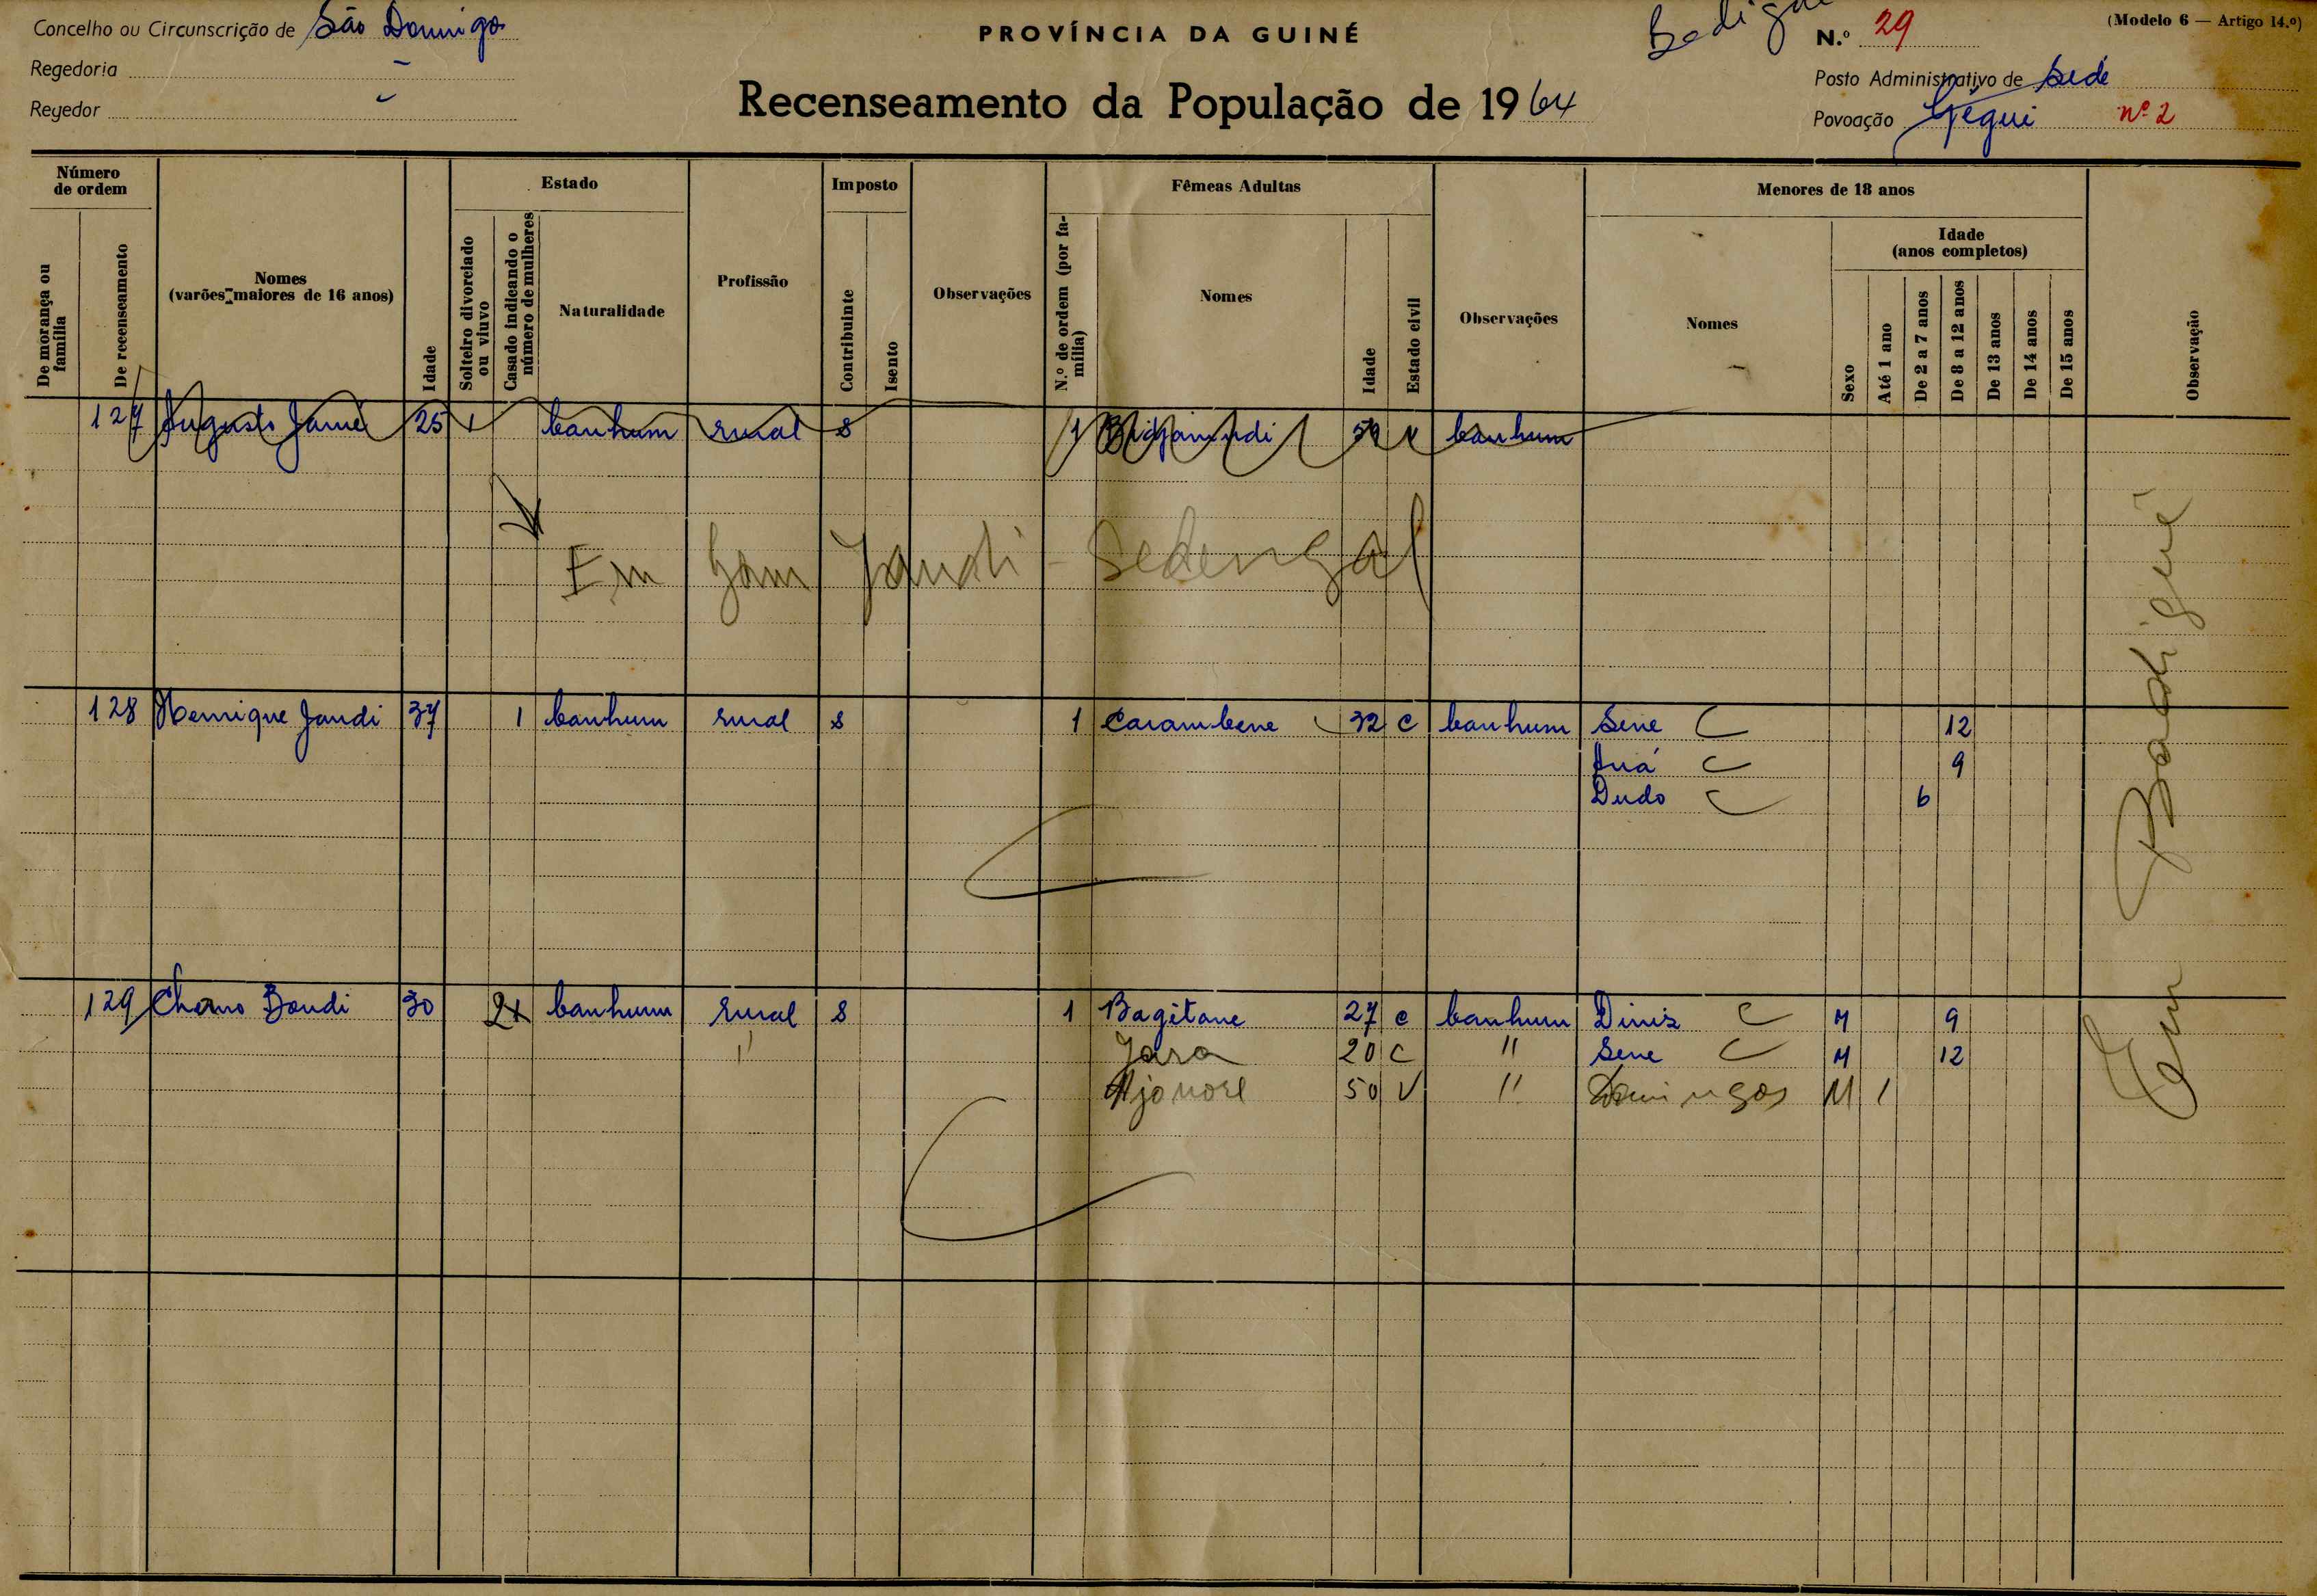 Concelho ou Circunscrição de São Domingos
Regedoria -
Regedor -
PROVÍNCIA DA GUINÉ
Recenseamento da População de 1964
N.º 29
(Modelo 6 — Artigo 14.º)
Posto Administrativo de Sede
Povoação nº 2
Número de ordem
De morança ou família
De recenseamento
Nomes
(varões maiores de 16 anos)
Idade
Estado
Solteiro divorciado ou viuvo
Casado indicando o número de mulheres
Naturalidade
Profissão
Imposto
Contribuinte
Isento
Observações
Fêmeas Adultas
N.º de ordem (por família)
Nomes
Idade
Estado civil
Observações
Menores de 18 anos
Nomes
Sexo
Idade
(anos completos)
Até 1 ano
De 2 a 7 anos
De 8 a 12 anos
De 13 anos
De 14 anos
De 15 anos
Observação
127 Augusto Jamé 25 1 banhum rural s 1 banhum
Em Gam Jandi - Sedengal
128 Henrique Jandi 37 1 banhum rural s 1 Carambene 32 c banhum Sene C 12
C 9
Dudo C 6
129 Chamo Bandi 30 2 banhum rural s 1 Bagitane 27 c banhum Diniz C M 9
" Jara 20 C " Sene C M 12
50 V " Domingos M 1
Em Badigué